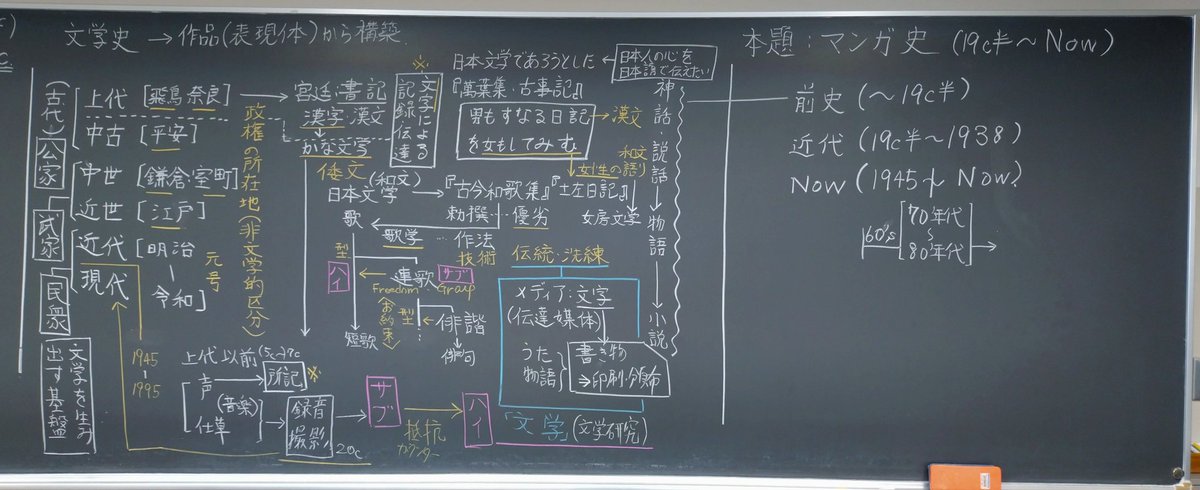 文学史 → 作品(表現体)から構築
(古代)
公家
武家
民衆
文学を生み出す基盤
上代[飛鳥・奈良]
中古[平安]
中世[鎌倉・室町]
近世[江戸]
近代[明治
現代 令和]
元号
政権の所在地(非文学的区分)
1945
1995
宮廷・書記
漢字・漢文
かな文字
倭文
(和文)
日本文学
※
文字による
記録・伝達
日本文学であろうとした ← 日本人の心を
日本語で伝えたい
『萬葉集・古事記』
男もすなる日記 → 漢文
を女もしてみむ
女性の語り
和文
→『古今和歌集』『土左日記』
勅撰 優劣
女房文学
歌
歌学…作法
技術
型
ハイ
連歌
サブ
Freedom Group
お約束
型
俳諧
俳句
短歌
伝統・洗練
メディア:文字
(伝達媒体)
うた
物語
書き物
⇒印刷・頒布
「文学」(文学研究)
神話・説話→物語―小説
上代以前(5c~7c)
声 → 所記 ※
(音楽)
仕草
録音
撮影
20c
→ サブ → ハイ
抵抗
カウンター
本題:マンガ史(19c半~Now)
前史(~19c半)
近代(19c半~1938)
Now(1945~Now)
60's
70年代
~
80年代